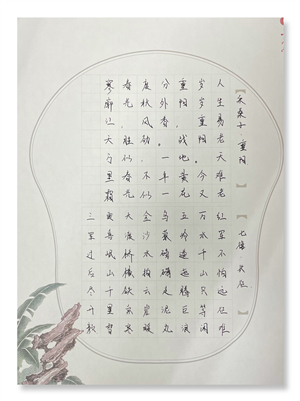 采桑子·重阳
人生易老天难老
岁岁重阳。今又
重阳，战地黄花
分外香。一年一
度秋风劲，不似
春光。胜似春光
寥廓江天万里霜
七律 长征
红军不怕远征难
万水千山只等闲
五岭逶迤腾细浪
乌蒙磅礴走泥丸
金沙水拍云崖暖
大渡桥横铁索寒
更喜岷山千里雪
三军过后尽开颜